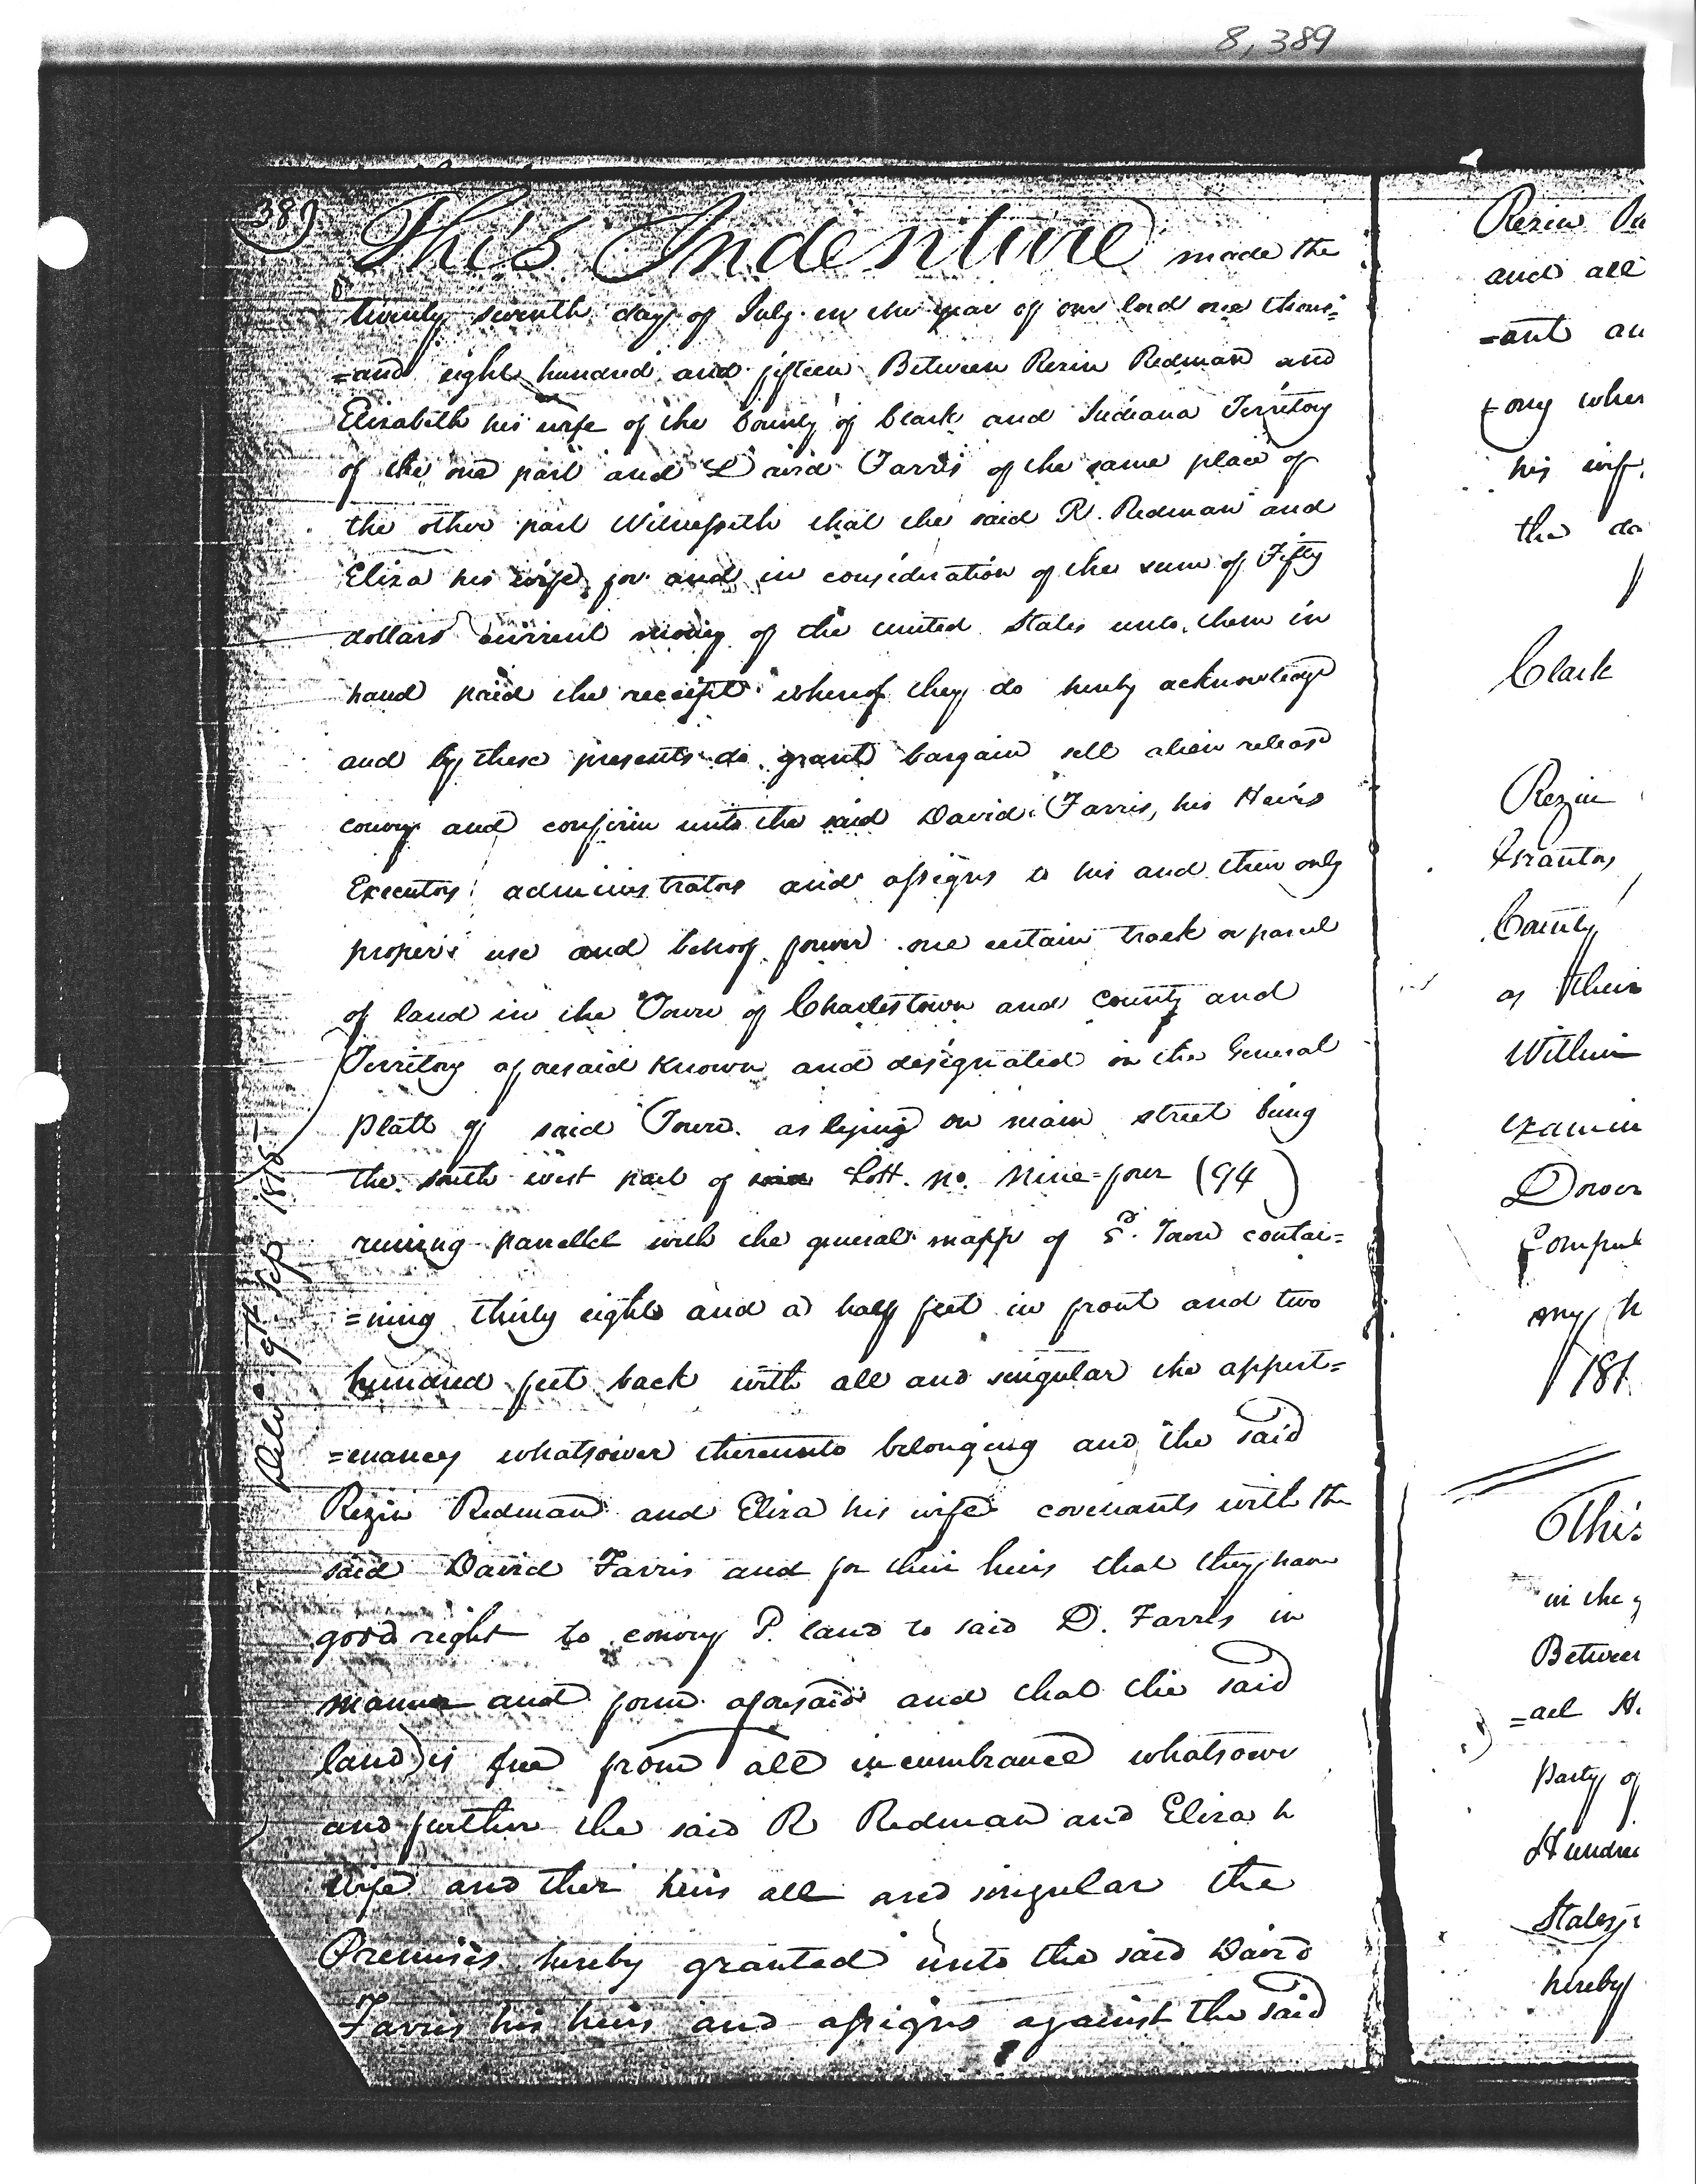 8,389
389
This Indenture made the
twenty seventh day of July in the year of our lord one thous=
=and eight hundred and fifteen Between Rezin Redman and
Elizabeth his wife of the County of Clark and Indiana Territory
of the one part and David Farris of the same place of
the other part Witnesseth that the said R. Redman and
Eliza his wife for and in consideration of the sum of Fifty
dollars current money of the united States unto them in
hand paid the receipt whereof they do hereby acknowledge
and by these presents do grant bargain sell alien release
convey and confirm unto the said David Farris, his Heirs
Executors administrators and assigns to his and their only
proper use and behoof forever one certain track or parcel
of land in the Town of Charlestown and County and
Territory aforesaid known and designated in the General
Platt of said Town as lying on main street being
the south west part of Lott. No. Nine=four (94)
runing parrellel with the general mapp of Sd. Town contai=
=ning thirty eight and a half feet in front and two
hundred feet back with all and singular the appert=
=enances whatsoever thereunto belonging and the said
Rezin Redman and Eliza his wife covenants with the
said David Farris and for their heirs that they have
good right to convey P. land to said D. Farris in
manner and form aforesaid and that the said
land is free from all incumbrance whatsoever
and further the said R Redman and Eliza h
wife and their heirs all and singular the
Premises hereby granted unto the said David
Farris his heirs and assigns against the said
Deld. 9th Sep 1815
Rezin
and all
=ant an
his wife
the da
Clark
Rezin
Grantor
County
as their
Within
examin
Dower
any
181
This
in the y
Between
=ael H.
party of
Hundred
States
hereby